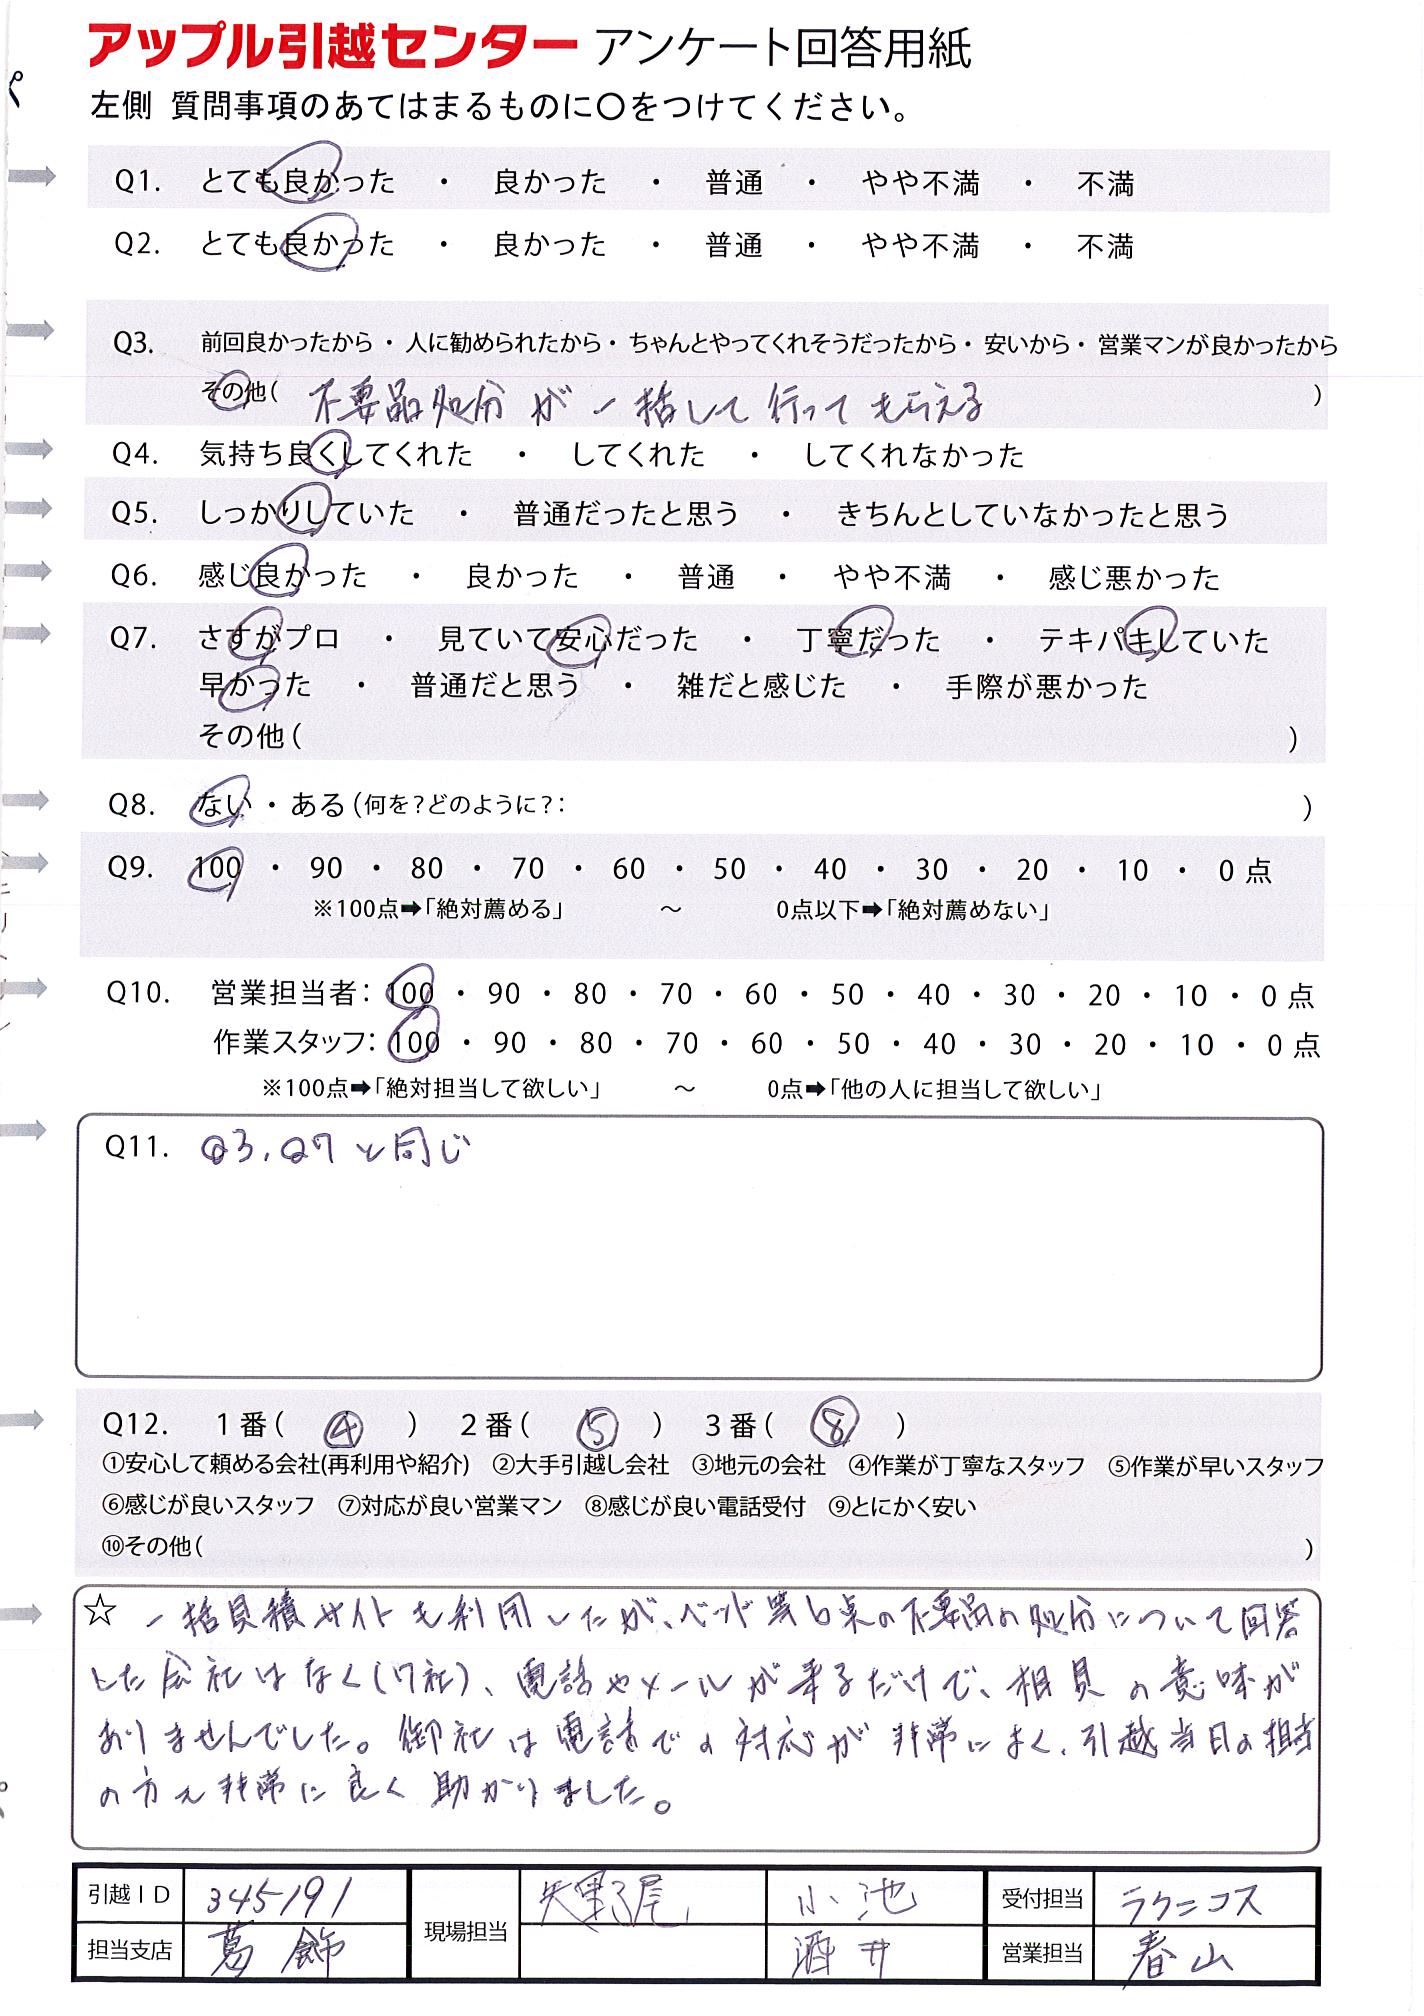 アップル引越センター アンケート回答用紙
左側 質問事項のあてはまるものに〇をつけてください。
Q1. とても良かった ・ 良かった ・ 普通 ・ やや不満 ・ 不満
Q2. とても良かった ・ 良かった ・ 普通 ・ やや不満 ・ 不満
Q3. 前回良かったから・人に勧められたから・ちゃんとやってくれそうだったから・安いから・営業マンが良かったから
その他( 不要品処分が一括して行ってもらえる )
Q4. 気持ち良くしてくれた ・ してくれた ・ してくれなかった
Q5. しっかりしていた ・ 普通だったと思う ・ きちんとしていなかったと思う
Q6. 感じ良かった ・ 良かった ・ 普通 ・ やや不満 ・ 感じ悪かった
Q7. さすがプロ ・ 見ていて安心だった ・ 丁寧だった ・ テキパキしていた
早かった ・ 普通だと思う ・ 雑だと感じた ・ 手際が悪かった
その他( )
Q8. ない・ある(何を?どのように?: )
Q9. 100 ・ 90 ・ 80 ・ 70 ・ 60 ・ 50 ・ 40 ・ 30 ・ 20 ・ 10 ・ 0 点
※100点➡「絶対薦める」 ～ 0点以下➡「絶対薦めない」
Q10. 営業担当者: 100 ・ 90 ・ 80 ・ 70 ・ 60 ・ 50 ・ 40 ・ 30 ・ 20 ・ 10 ・ 0 点
作業スタッフ: 100 ・ 90 ・ 80 ・ 70 ・ 60 ・ 50 ・ 40 ・ 30 ・ 20 ・ 10 ・ 0 点
※100点➡「絶対担当して欲しい」 ～ 0点➡「他の人に担当して欲しい」
Q11. Q3,Q7と同じ
Q12. 1番( ④ ) 2番( ⑤ ) 3番( ⑧ )
①安心して頼める会社(再利用や紹介) ②大手引越し会社 ③地元の会社 ④作業が丁寧なスタッフ ⑤作業が早いスタッフ
⑥感じが良いスタッフ ⑦対応が良い営業マン ⑧感じが良い電話受付 ⑨とにかく安い
⑩その他( )
☆ 一括見積サイトも利用したが、ベッド等6点の不要品の処分について回答
した会社はなく(7社)、電話やメールが来るだけで、相見の意味が
ありませんでした。御社は電話での対応が非常によく、引越当日の担当
の方も非常に良く助かりました。
引越ID 345191 現場担当 小池 受付担当 ラクニコス
担当支店 葛飾 酒井 営業担当 春山